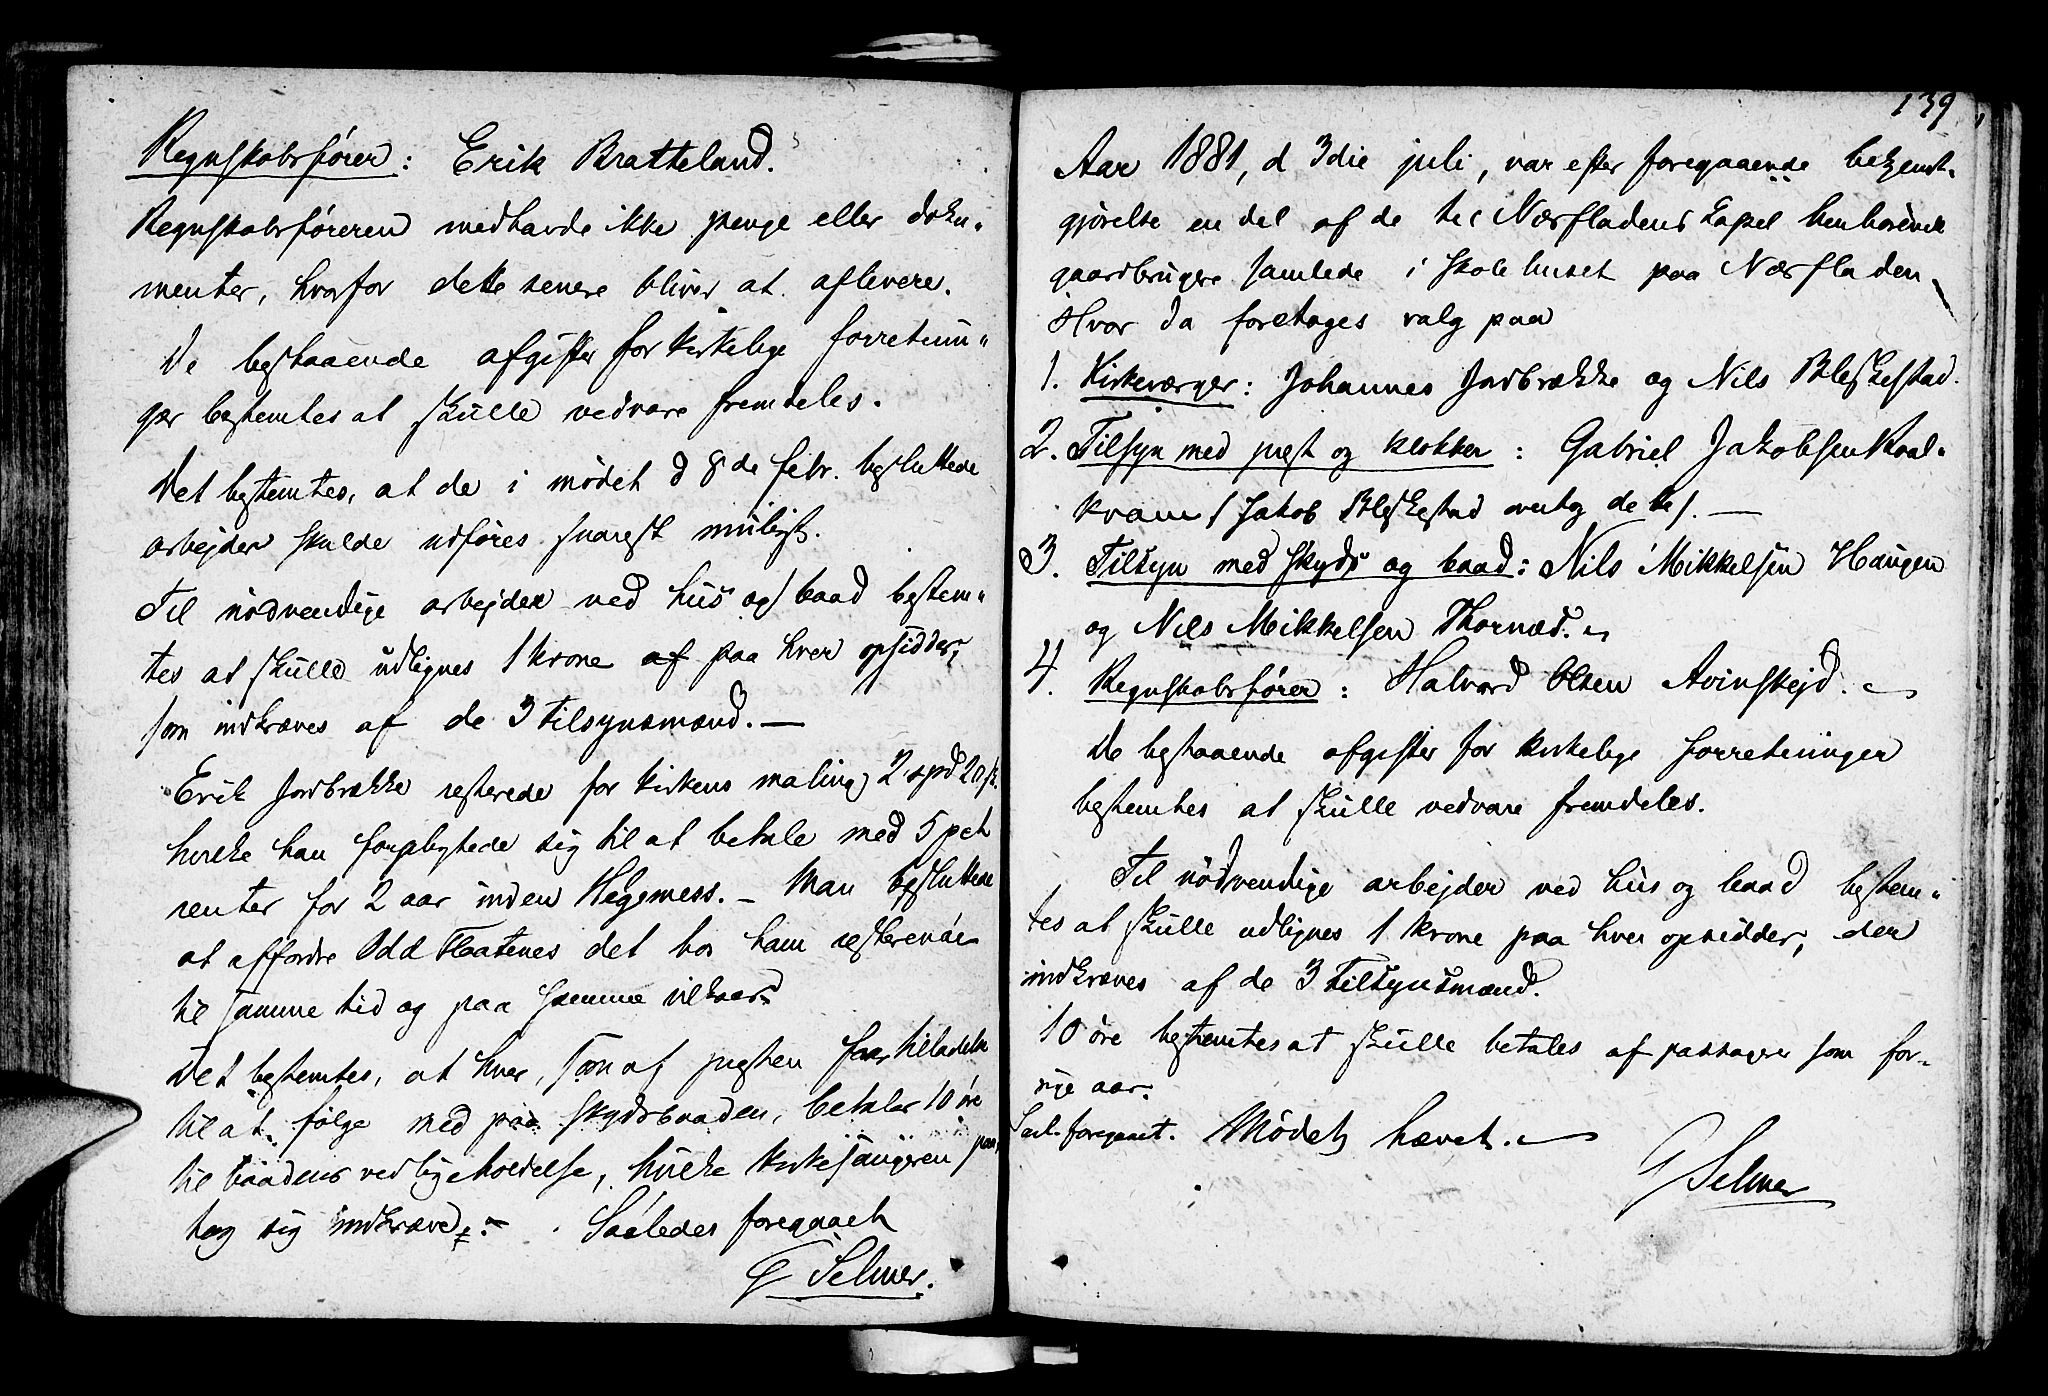 Regnskabsfører: Erik Bratteland.
Regnskabsføreren medhavde ikke penge eller doku-
menter, hvorfor dette senere bliver at aflevere.
De bestaaende afgifter for kirkelige forretnin-
ger bestemtes at skulle vedvare fremdeles.
Det bestemtes, at de i mødet d 8de febr. besluttede
arbejder skulde udføres snarest muligt.
Til nødvendige arbejder ved hus og baad bestem-
tes at skulle udlignes 1 krone af paa hver opsidder,
som indkræves af de 3 tilsynsmænd. —
Erik Jordbrække resterede for kirkens maling 2 spd 20 sk.
hvilke han forpligtede sig til at betale med 5 pct
renter for 2 aar inden Høgemess. – Man besluttede
at affordre Odd Flatenes det hos ham resterende
til samme tid og paa samme vilkaar
Det bestemtes, at hver, som af presten faar tilladelse
til at følge med paa skydsbaaden, betaler 10 øre
til baadens vedligeholdelse, hvilke kirkesangeren paa-
tog sig indkræve. Saaledes foregaaet
G Selmer.
139
Aar 1881, d 3die juli, var efter foregaaende bekjendt-
gjørelse en del af de til Nærfladens Kapel henhørende
gaardbrugere samlede i skolehuset paa Nærfladen,
Hvor da foretoges valg paa
1. Kirkeværger: Johannes Jordbrække og Nils Bleskestad.
2. Tilsyn med prest og klokker: Gabriel Jakobsen Roal-
kvam / Jakob Bleskestad overtog dette /. —
3. Tilsyn med skyds og baad: Nils Mikkelsen Haugen
og Nils Mikkelsen Thornæs.
4. Regnskabsfører: Halvard Olsen Avinskejd.
De bestaaende afgifter for kirkelige forretninger
bestemtes at skulle vedvare fremdeles.
Til nødvendige arbejder ved hus og baad bestem-
tes at skulle udlignes 1 krone paa hver opsidder, der
indkræves af de 3 Tilsynsmænd.
10 øre bestemtes at skulle betales af passager som for-
rige aar.
Saal. foregaaet. Mødet hævet. —
G Selmer